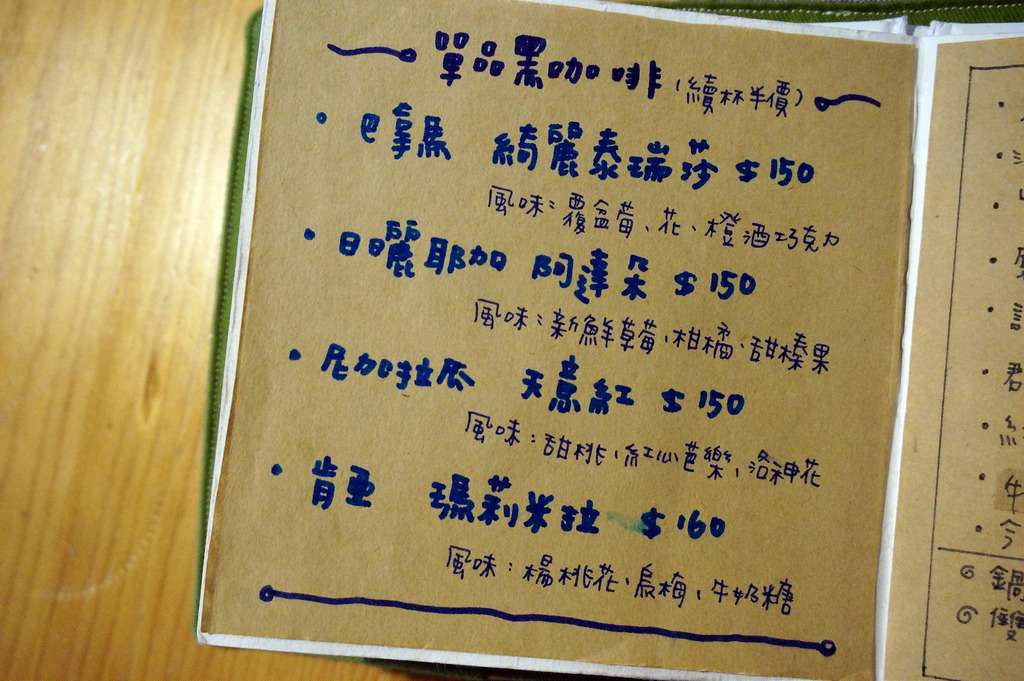 單品黑咖啡(續杯半價)
· 巴拿馬 綺麗泰瑞莎 $150
風味:覆盆莓、花、橙酒巧克力
· 日曬耶加 阿達朵 $150
風味:新鮮草莓、柑橘、甜榛果
· 尼加拉瓜 天意紅 $150
風味:甜桃、紅心芭樂、洛神花
· 肯亞 瑪莉米拉 $160
風味:楊桃花、烏梅、牛奶糖
君
牛
今
鍋
雙